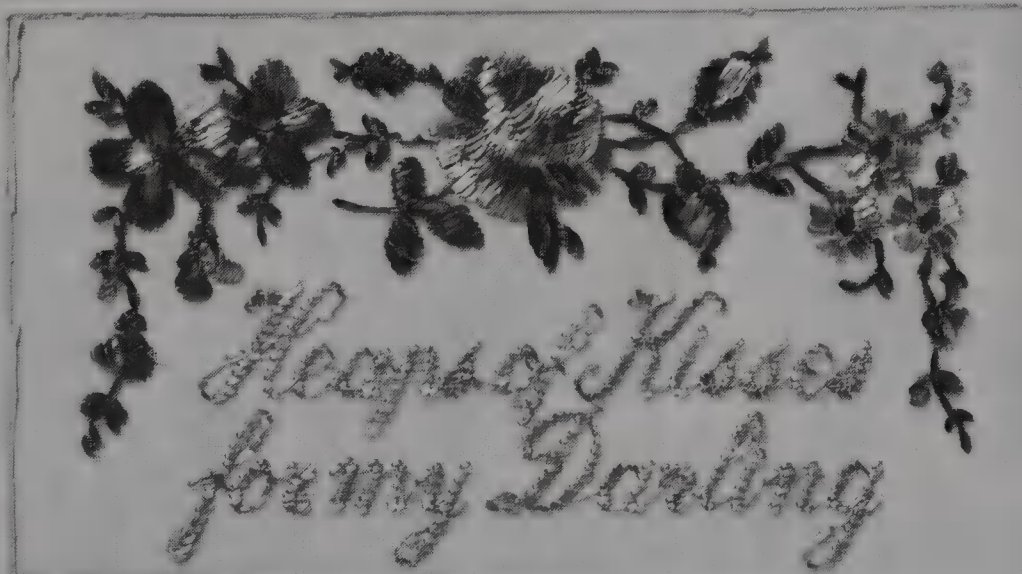 Heaps of Kisses
for my Darling